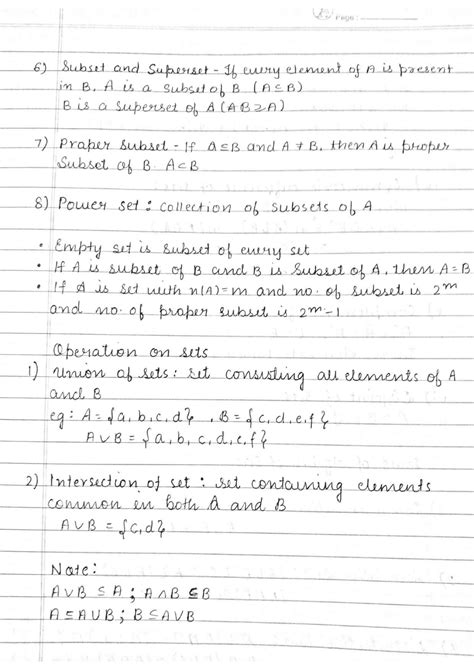 Page:
6) Subset and Superset - If every element of A is present
in B, A is a subset of B (A⊆B)
B is a superset of A (AB⊇A)
7) Proper Subset - If A⊆B and A≠B, then A is proper
Subset of B. A⊂B
8) Power set : collection of subsets of A
• Empty set is subset of every set
• If A is subset of B and B is Subset of A, then A=B
• If A is set with n(A)=m and no. of subset is 2^m
and no. of proper subset is 2^m-1
Operation on sets
1) Union of sets : set consisting all elements of A
and B
eg : A={a,b,c,d} , B={c,d,e,f}
A∪B = {a,b,c,d,e,f}
2) Intersection of set : set containing elements
common in both A and B
A∪B = {c,d}
Note:
A∪B ⊆A ; A∩B ⊆B
A⊆A∪B ; B⊆A∪B